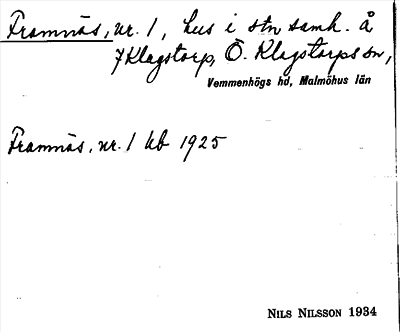 Framnäs, nr. 1, hus i stn samh. å
7 Klagstorp, Ö. Klagstorps sn,
Vemmenhögs hd, Malmöhus län
Framnäs, nr. 1 kb 1925
NILS NILSSON 1934